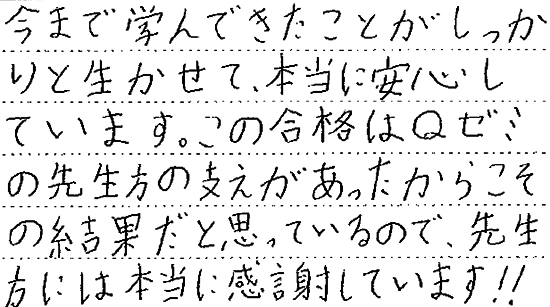 今まで学んできたことがしっか
りと生かせて、本当に安心し
ています。この合格はQゼミ
の先生方の支えがあったからこそ
の結果だと思っているので、先生
方には本当に感謝しています!!